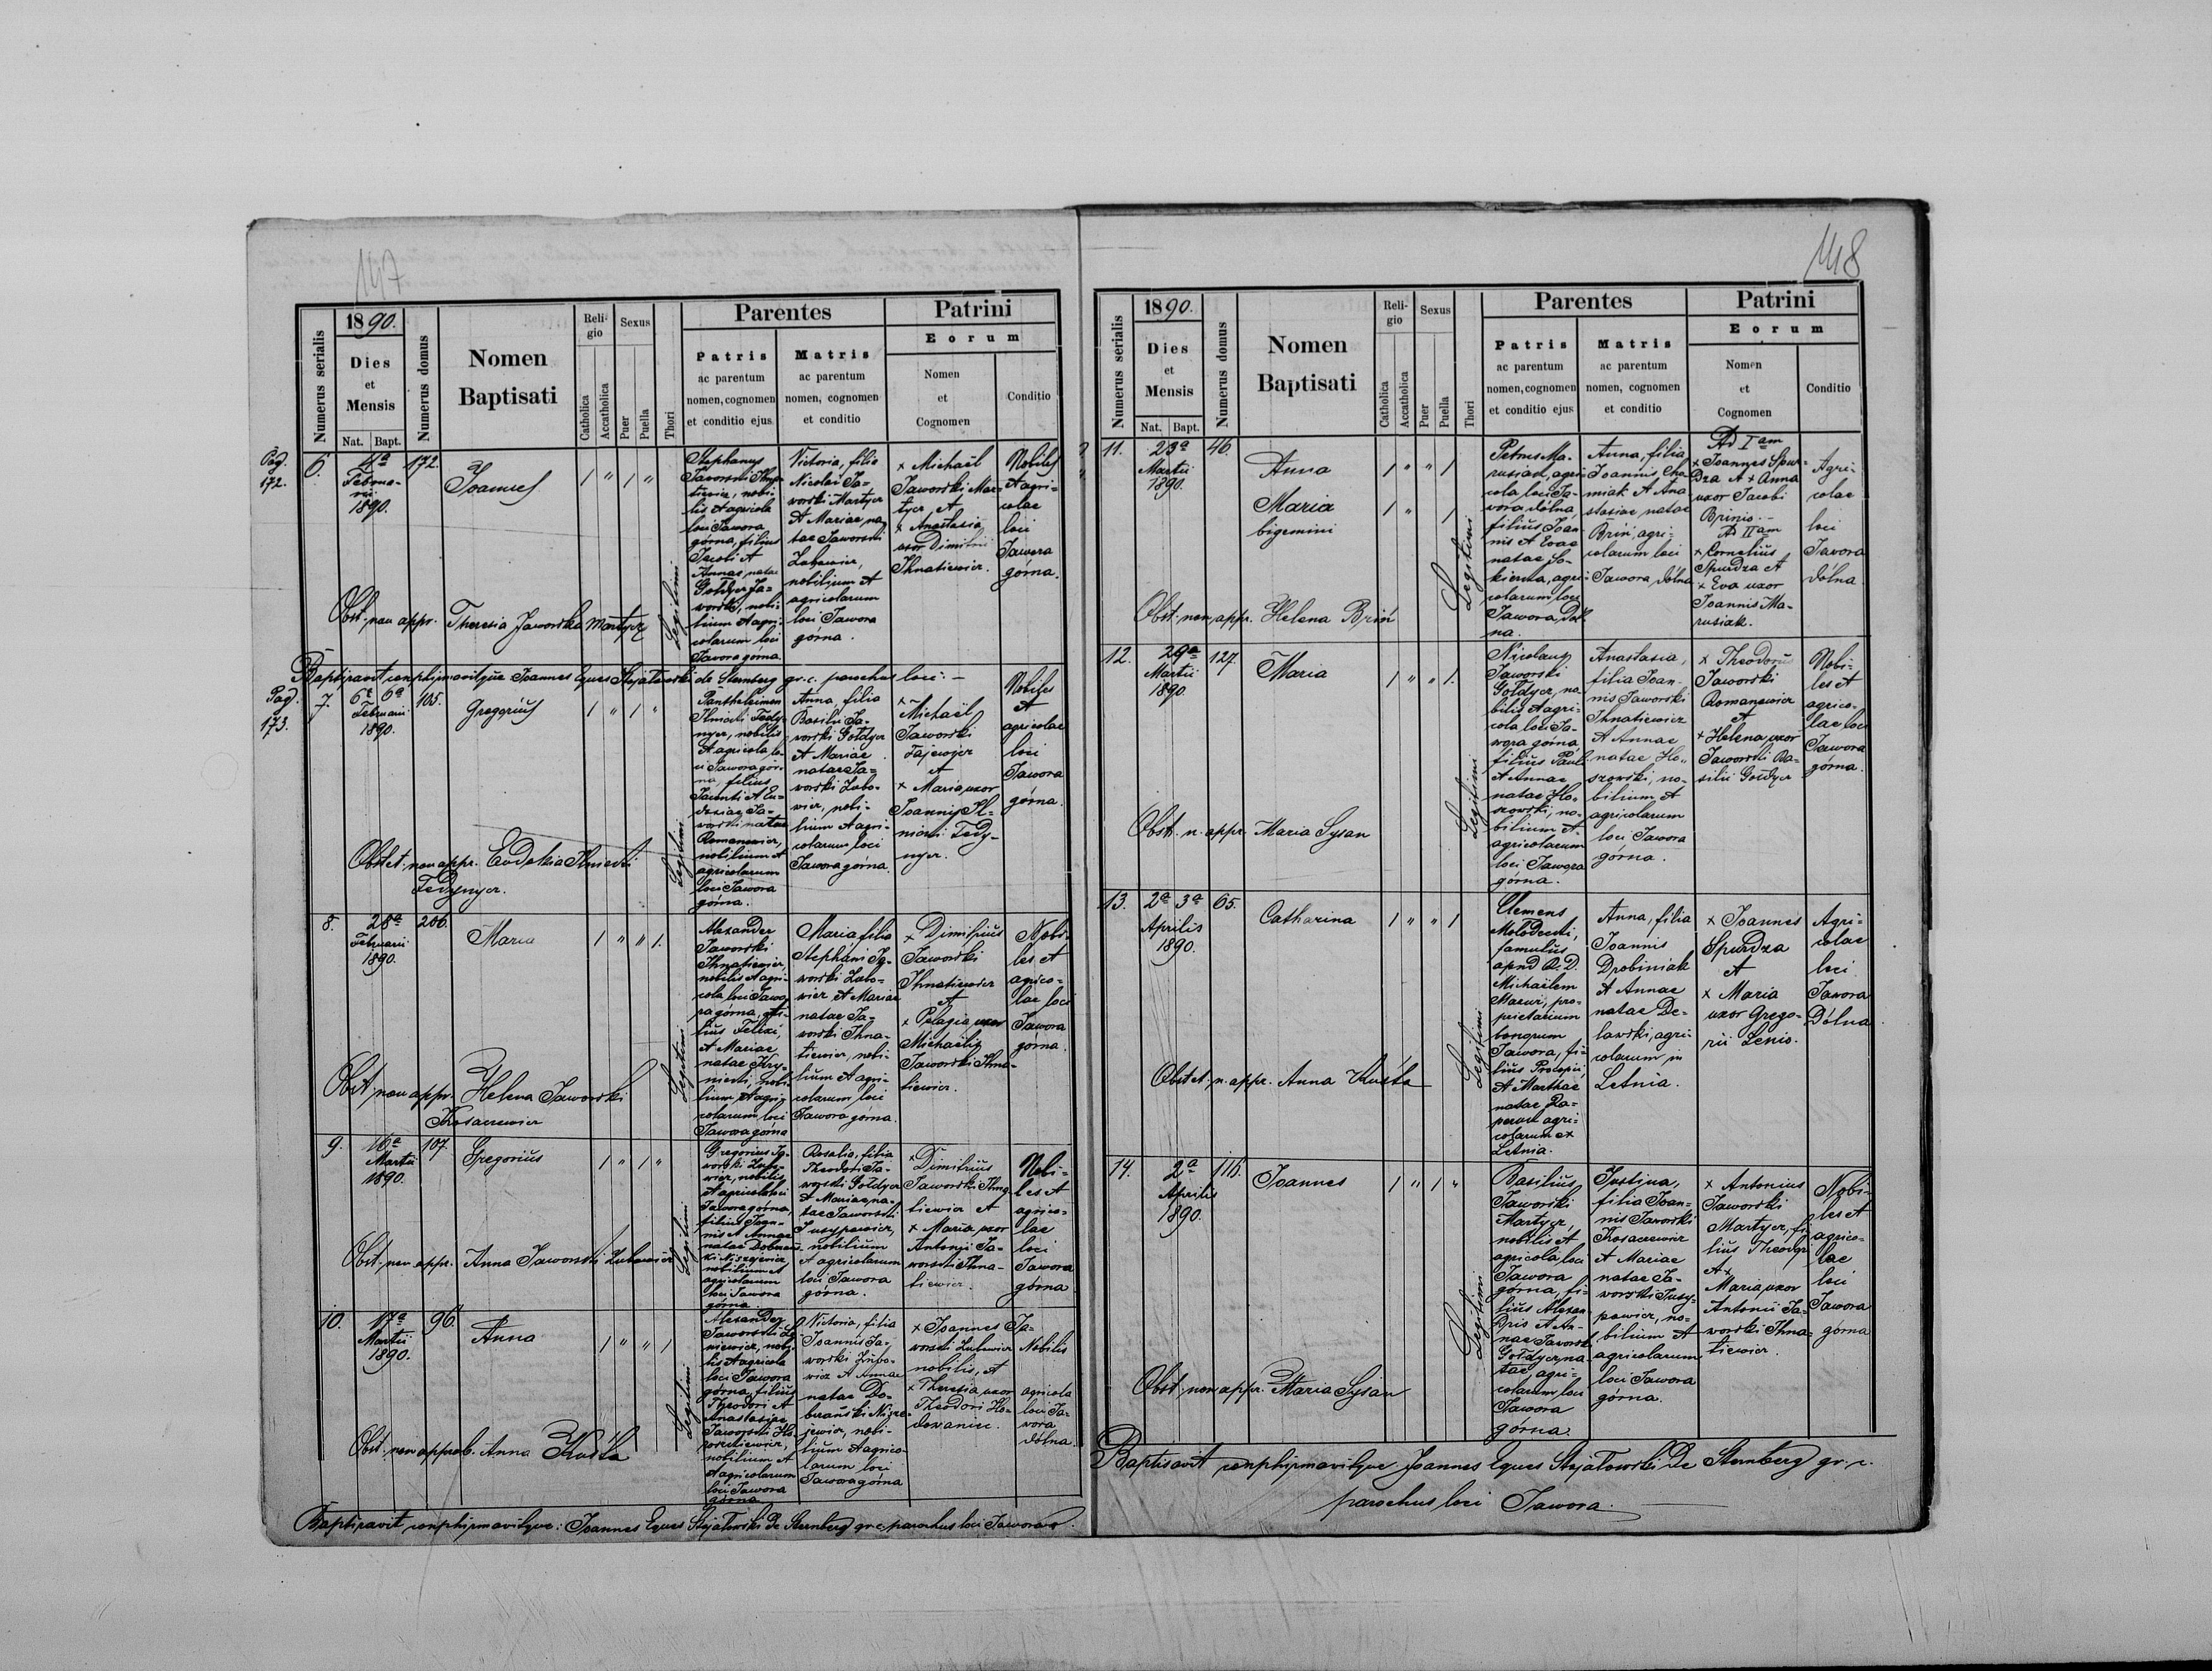 147
1890.
Numerus serialis
Dies
et
Mensis
Nat. Bapt.
Numerus domus
Nomen
Baptisati
Reli-
gio
Catholica
Accatholica
Sexus
Puer
Puella
Thori
Parentes
Patris
ac parentum
nomen, cognomen
et conditio ejus
Matris
ac parentum
nomen, cognomen
et conditio
Patrini
Eorum
Nomen
et
Cognomen
Conditio
Pag.
172.
6.
4a
Februa-
rii
1890.
172.
Joannes
1 " 1 "
Legitimi
Stephanus
Jaworski Ihna-
tiewicz, nobi-
lis et agricola
loci Jawora
górna, filius
Jacobi et
Annae natae
Gołdycz Ja-
worski, nobi-
lium et agri-
colarum loci
Jawora górna.
Victoria, filia
Nicolai Ja-
worski Martycz
et Mariae na-
tae Jaworski
Zubowicz,
nobilium et
agricolarum
loci Jawora
górna.
+ Michaël
Jaworski Mar-
tycz et
+ Anastasia
uxor Dimitrii
Ihnatiewicz.
Nobiles
et agri-
colae
loci
Jawora
górna.
Obst. non appr. Theresia Jaworska Martycz
Baptisavit confirmavitque Joannes Eques Stojałowski de Sternberg gr. c. parochus loci: –
Pag.
173.
7.
6a 6a
Februarii
1890.
105.
Gregorius
1 " 1 "
Legitimi
Pantheleimon
Ilnicki Fedy-
nycz, nobilis
et agricola lo-
ci Jawora gór-
na, filius
et Eu-
doxiae Ja-
worski natae
Romanowicz,
nobilium et
agricolarum
loci Jawora
górna.
Anna, filia
Basilii Ja-
worski Gołdycz
et Mariae
natae Ja-
worski Zubo-
wicz, nobi-
lium et agri-
colarum loci
Jawora górna.
+
Michaël
Jaworski
et
+ Maria, uxor
Joannis Il-
nicki Fedy-
nycz.
Nobiles
et
agricolae
loci
Jawora
górna.
Obstet. non appr. Eudokia Ilnicki
Fedynycz.
8.
28a
Februarii
1890.
206.
Maria
1 " " 1.
Legitimi
Alexander
Jaworski
Ihnatiewicz,
nobilis et agri-
cola loci Jawo-
ra górna, fi-
lius Felixi,
et Mariae
natae Kry-
nicki, nobi-
lium et agri-
colarum loci
Jawora górna
Maria filia
Stephani Ja-
worski Zubo-
wicz et Mariae
natae Ja-
worski Ihna-
tiewicz, nobi-
lium et agri-
colarum loci
Jawora górna.
+ Dimitrius
Jaworski
Ihnatiewicz
et
+ Pelagia uxor
Michaëlis
Jaworski Ihna-
tiewicz.
Nobi-
les et
agrico-
lae loci
Jawora
gorna.
Obst. non appr. Helena Jaworski
Kosacewicz
9.
16a
Martii
1890.
107.
Gregorius
1 " 1 "
Legitimi
Gregorius Ja-
worski Zubo-
wicz, nobilis
et agricola loci
Jawora górna,
filius Joan-
nis et Annae
natae
nobilium et
agricolarum
loci Jawora
górna.
Rosalia, filia
Theodori Ja-
worski Gołdycz
et Mariae, na-
tae Jaworski
nobilium
et agricolarum
loci Jawora
górna.
+ Dimitrius
Jaworski Ihna-
tiewicz et
+ Maria, uxor
Antonii Ja-
worski Ihna-
tiewicz.
Nobi-
les et
agrico-
lae
loci
Jawora
górna
Obst. non appr. Anna Jaworski Zubowicz
10.
17a
Martii
1890.
96.
Anna
1 " " 1
Legitimi
Alexander
Jaworski
nobi-
lis et agricola
loci Jawora
górna, filius
Theodori et
Anastasiae
Jaworski
nobilium et
et agricolarum
loci Jawora
górna
Victoria, filia
Joannis Ja-
worski Zubo-
wicz et Annae
natae Do-
brzański
nobi-
lium et agrico-
larum loci
Jawora górna
+ Joannes Ja-
worski Zubowicz
nobilis, et
+ Theresia, uxor
Theodori Ho-
dowaniec.
Nobilis
agricola
loci Ja-
wora
dólna.
Obst. non approb. Anna Kuśła
Baptisavit confirmavitque: Joannes Eques Stojałowski de Sternberg gr. c. parochus loci Jawora.
148
1890.
Numerus serialis
Dies
et
Mensis
Nat. Bapt.
Numerus domus
Nomen
Baptisati
Reli-
gio
Catholica
Accatholica
Sexus
Puer
Puella
Thori
Parentes
Patris
ac parentum
nomen, cognomen
et conditio ejus
Matris
ac parentum
nomen, cognomen
et conditio
Patrini
Eorum
Nomen
et
Cognomen
Conditio
11.
23a
Martii
1890.
46.
Anna
1 " " 1
Maria
1 " 1
bigemini
Legitimi
Petrus Ma-
rusiak, agri-
cola loci Ja-
wora dólna,
filius Joan-
nis et Evae
natae
agri-
colarum loci
Jawora Dól-
na.
Anna, filia
Joannis Cha-
miak et Ana-
stasiae natae
Bryń, agri-
colarum loci
Jawora dólna
Ad Iam
+ Joannes Spur-
dza et + Anna
uxor Jacobi
Brynio. –
Ad IIam
+ Cornelius
Spurdza et
+ Eva uxor
Joannis Ma-
rusiak.
Agri-
colae
loci
Jawora
dólna.
Obst. non appr. Helena Bryń
12.
29a
Martii
1890
127.
Maria
1 " " 1.
Legitimi
Nicolaus
Jaworski
Gołdycz, no-
bilis et agri-
cola loci Ja-
wora górna,
filius Pauli
et Annae
natae Ho-
szowski, no-
bilium et
agricolarum
loci Jawora
górna.
Anastasia,
filia Joan-
nis Jaworski
Ihnatiewicz
et Annae
natae Ho-
szowski, no-
bilium et
agricolarum
loci Jawora
górna.
+ Theodorus
Jaworski
Romanowicz
et
+ Helena, uxor
Jaworski Ba-
silii Gołdycz
Nobi-
les et
agrico-
lae loci
Jawora
górna.
Obst. n. appr. Maria Sysan
13.
2a 3a
Aprilis
1890.
65.
Catharina
1 " " 1
Legitimi
Clemens
Mołodecki,
famulus
apud R. D.
Michaëlem
Mazur, pro-
prietarium
bonorum
Jawora, fi-
lius Procopii
et Marthae
natae
agri-
colarum ex
Letnia.
Anna, filia
Joannis
Drobiniak
et Annae
natae De-
lawski, agri-
colarum in
Letnia.
+ Joannes
Spurdza
et
+ Maria
uxor Grego-
rii Senio.
Agri-
colae
loci
Jawora
Dólna
Obstet. n. appr. Anna Kuśła
14.
2a
Aprilis
1890.
116.
Joannes
1 " 1 "
Legitimi
Basilius
Jaworski
Martycz,
nobilis et
agricola loci
Jawora
górna, fi-
lius Alexan-
dris et An-
nae Jaworski
Gołdycz na-
tae, agri-
colarum loci
Jawora
górna.
Justina,
filia Joan-
nis Jaworski
Kosacewicz
et Mariae
natae Ja-
worski Jusy-
powicz, no-
bilium et
agricolarum
loci Jawora
górna.
+ Antonius
Jaworski
Martycz, fi-
lius Theodori
et +
Maria, uxor
Antonii Ja-
worski Ihna-
tiewicz.
Nobi-
les et
agrico-
lae
loci
Jawora
górna
Obst. non appr. Maria Sysan
Baptisavit confirmavitque Joannes Eques Stojałowski de Sternberg gr. c.
parochus loci Jawora.